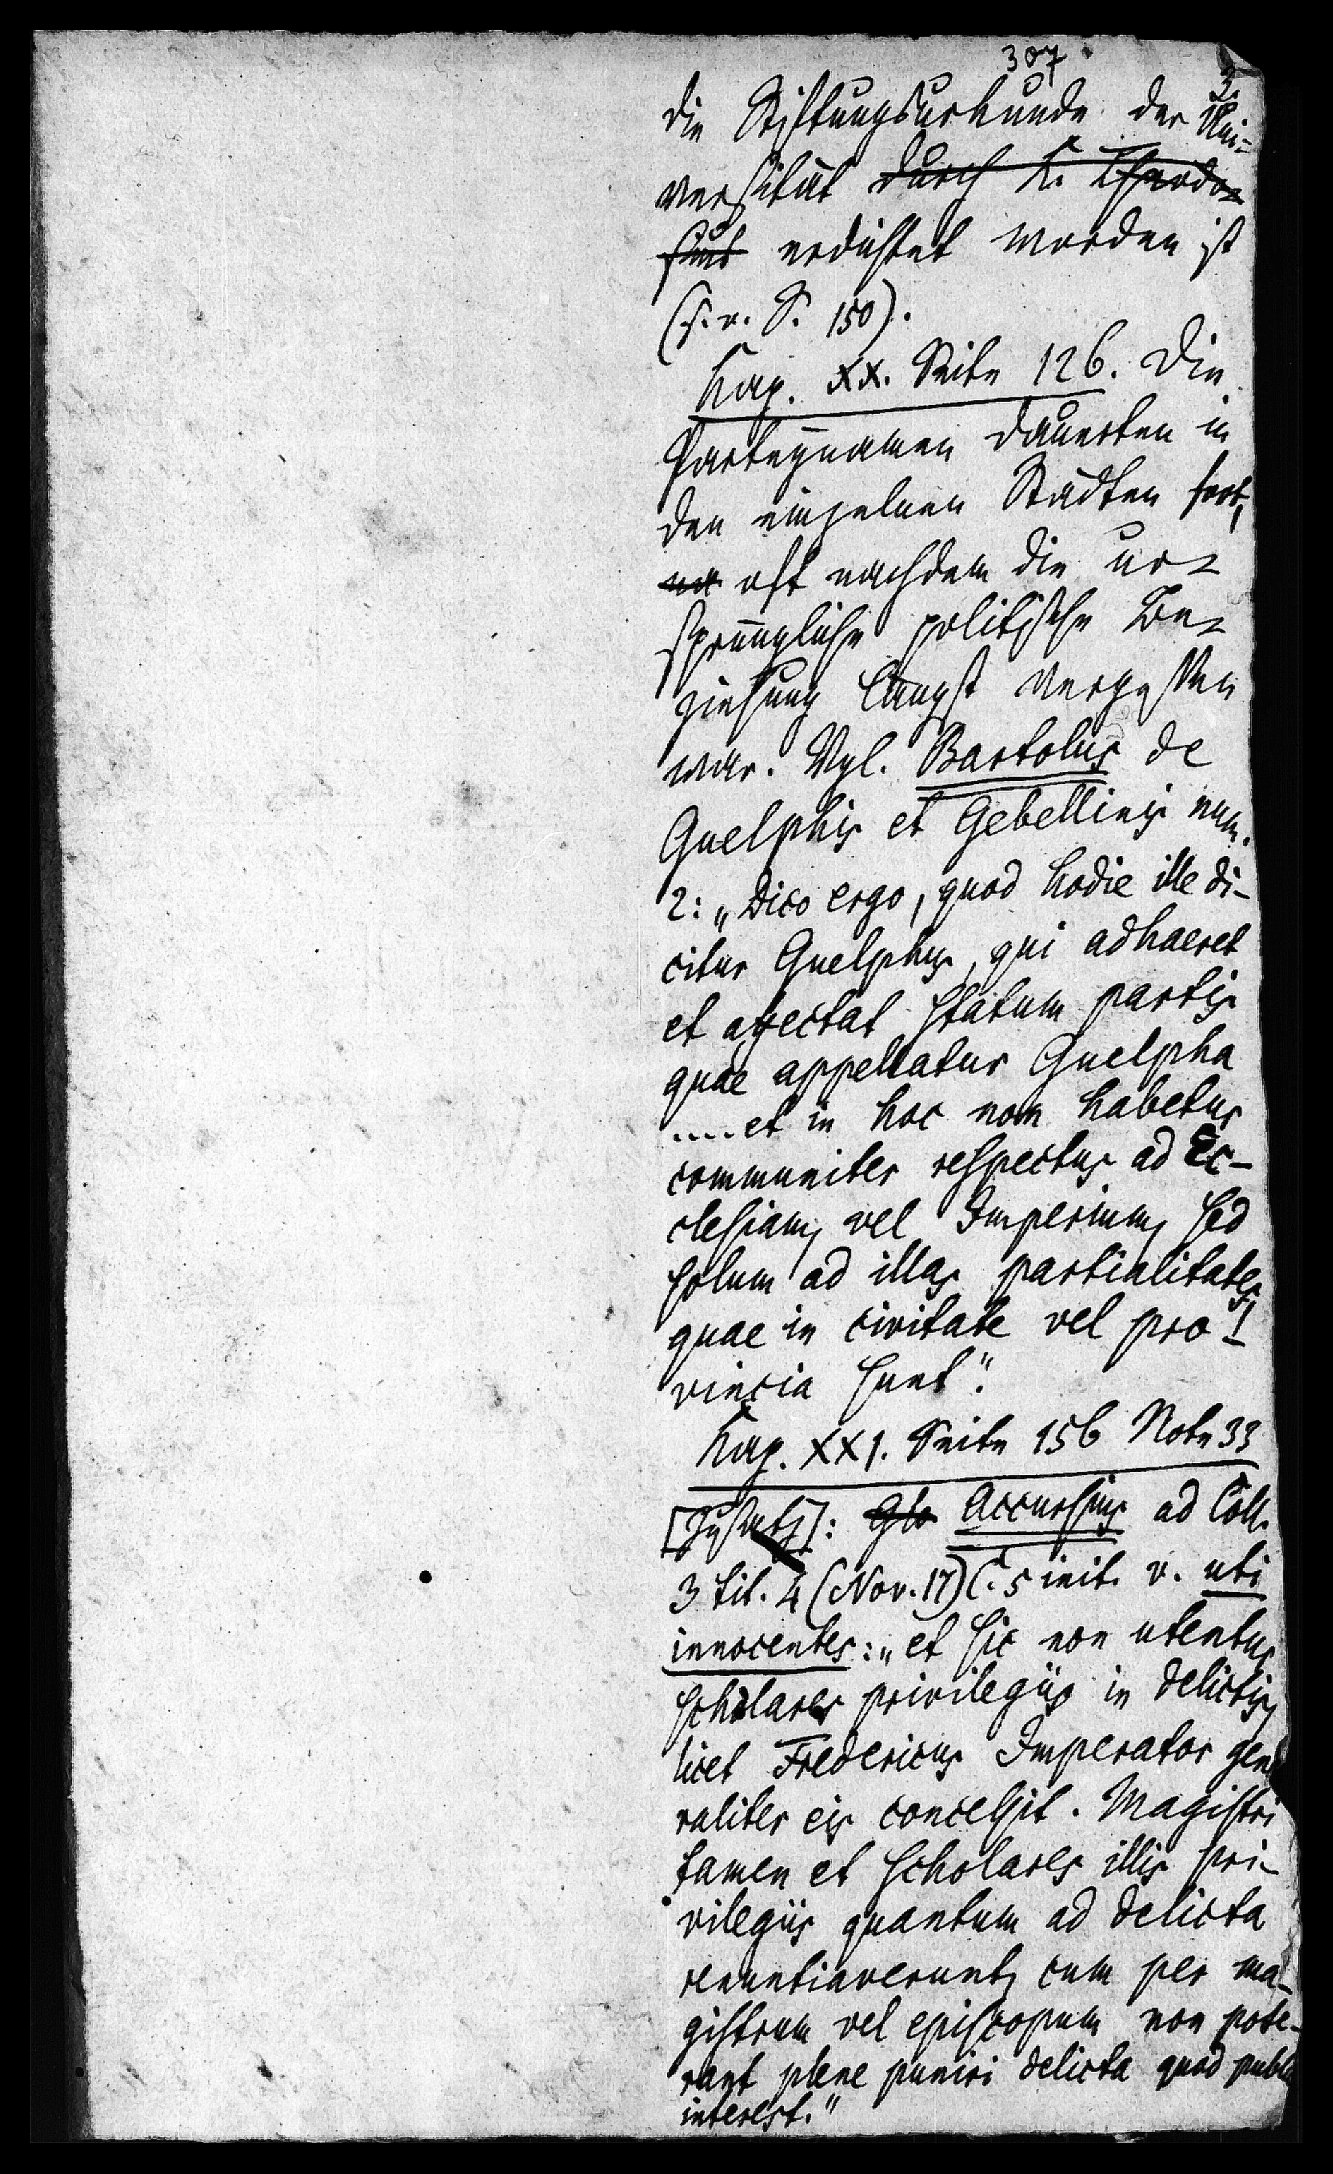 307
3.
die Stiftungsurkunde der Uni-
versität durch K. Theodo-
sius erdichtet worden ist
(s. v. S. 150).
Kap. XX. Seite 126. Die
Parteynamen dauerten in
den einzelnen Städten fort,
na oft nachdem die ur-
sprüngliche politische Be-
ziehung längst vergessen
war. Vgl. Bartolus de
Guelphis et Gebellinis num.
2: „Dico ergo, quod hodie ille di-
citur Guelphus, qui adhaeret
et affectat statum partis
quae appellatur Guelpha
.... et in hoc non habetur
communiter respectus ad Ec-
clesiam, vel Imperium, sed
solum ad illas partialitates,
quae in civitate vel pro-
vincia sunt".
Kap. XXI. Seite 156 Note 33
[Zusatz]: Glo Accursius ad Coll.
3 tit. 4 (Nov. 17) C. 5 init. v. uti
innocentes: „et sic non utentur
scholares privilegiis in delictis,
licet Fredericus Imperator gene
raliter eis concessit. Magistri
tamen et scholares illis pri-
vilegiis quantum ad delicta
renuntiaverunt, cum per ma-
gistrum vel episcopum non pote-
rant plene puniri delicta quod publ
interest."